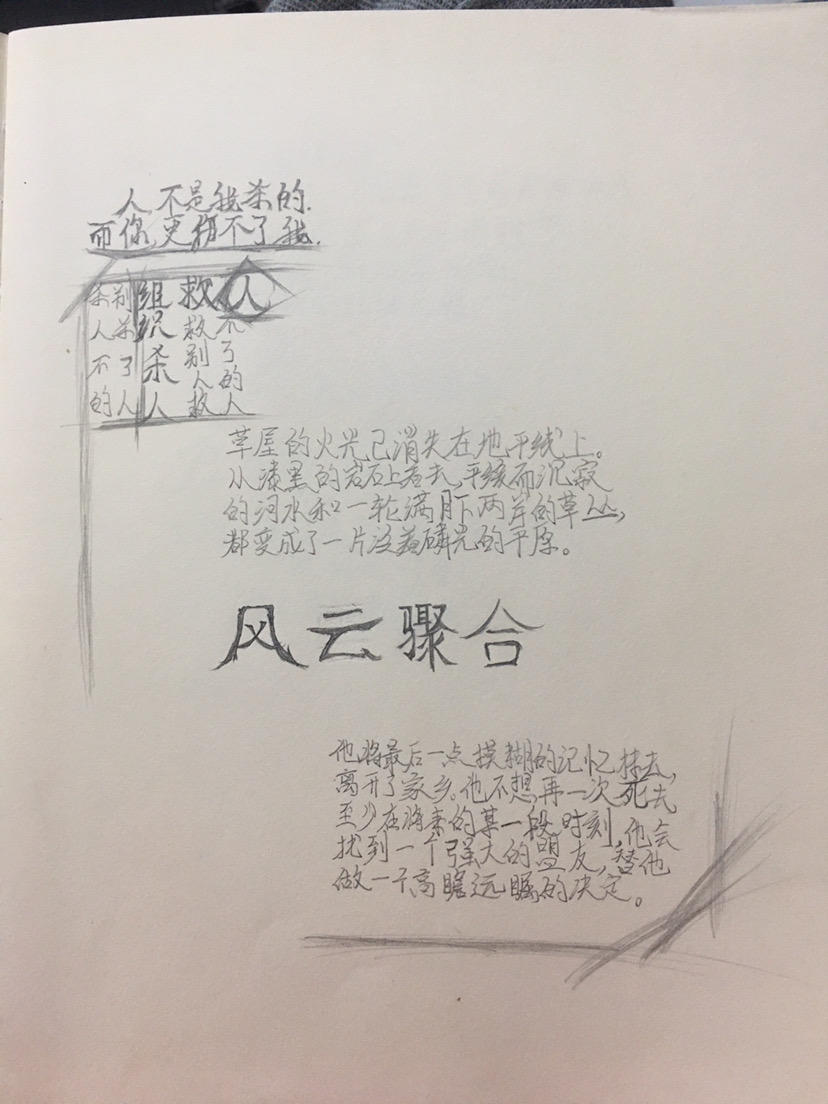 人,不是我杀的.
而你,更不了我.
救人
组织杀人
杀别
人杀
不了
的人
救别人救
不了的人
草屋的火光已消失在地平线上。
从漆黑的岩石上看去,平缓而沉寂
的河水和一轮满月下两岸的草丛,
都变成了一片泛着磷光的平原。
风云骤合
他将最后一点模糊的记忆抹去,
离开了家乡。他不想再一次死去
至少在将来的某一段时刻,他会
找到一个强大的盟友,替他
做一个高瞻远瞩的决定。